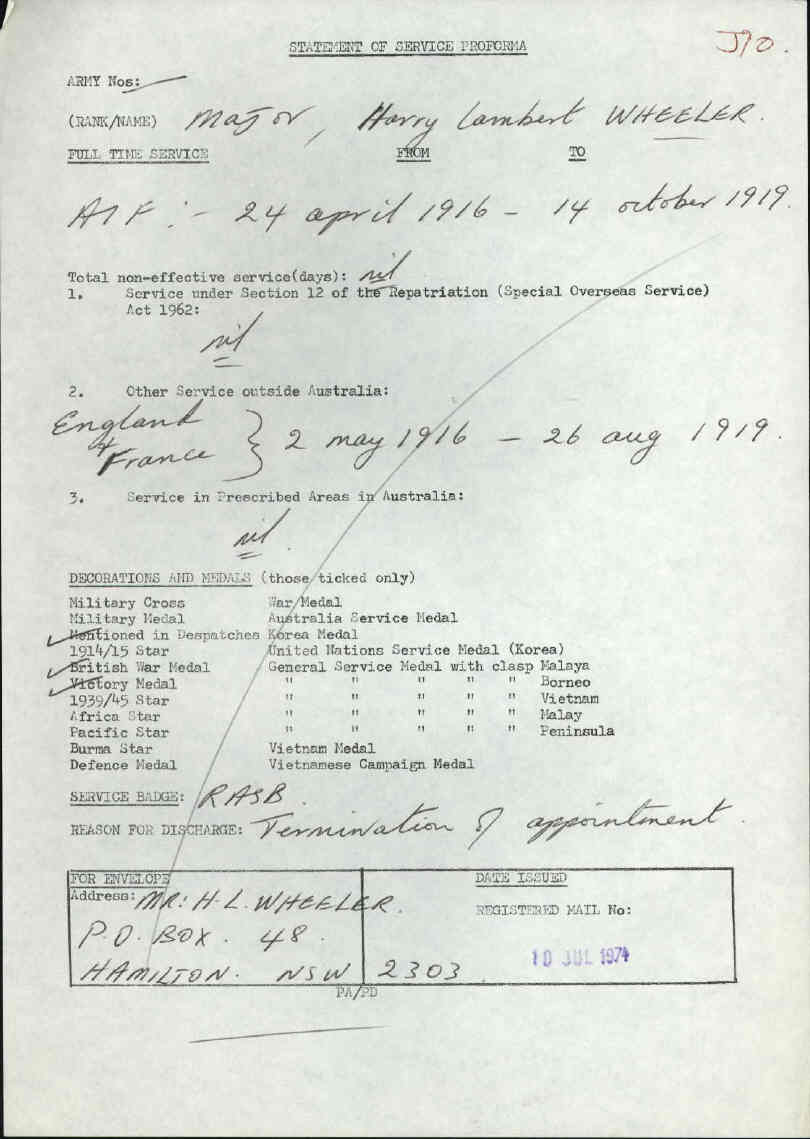 STATEMENT OF SERVICE PROFORMA
J10.
ARMY Nos:
(RANK/NAME) Major, Harry Lambert WHEELER.
FULL TIME SERVICE FROM TO
AIF :- 24 april 1916 - 14 october 1919.
Total non-effective service(days): nil
1. Service under Section 12 of the Repatriation (Special Overseas Service)
Act 1962:
nil
2. Other Service outside Australia:
England
+ France } 2 may 1916 - 26 aug 1919.
3. Service in Prescribed Areas in Australia:
nil.
DECORATIONS AND MEDALS (those ticked only)
Military Cross War Medal
Military Medal Australia Service Medal
✓ Mentioned in Despatches Korea Medal
1914/15 Star United Nations Service Medal (Korea)
✓ British War Medal General Service Medal with clasp Malaya
✓ Victory Medal " " " " " Borneo
1939/45 Star " " " " " Vietnam
Africa Star " " " " " Malay
Pacific Star " " " " " Peninsula
Burma Star Vietnam Medal
Defence Medal Vietnamese Campaign Medal
SERVICE BADGE: RASB.
REASON FOR DISCHARGE: Termination of appointment.
FOR ENVELOPE DATE ISSUED
Address: MR: H. L. WHEELER. REGISTERED MAIL No:
P.O. BOX. 48.
HAMILTON. NSW 2303. 10 JUL 1974
PA/PD